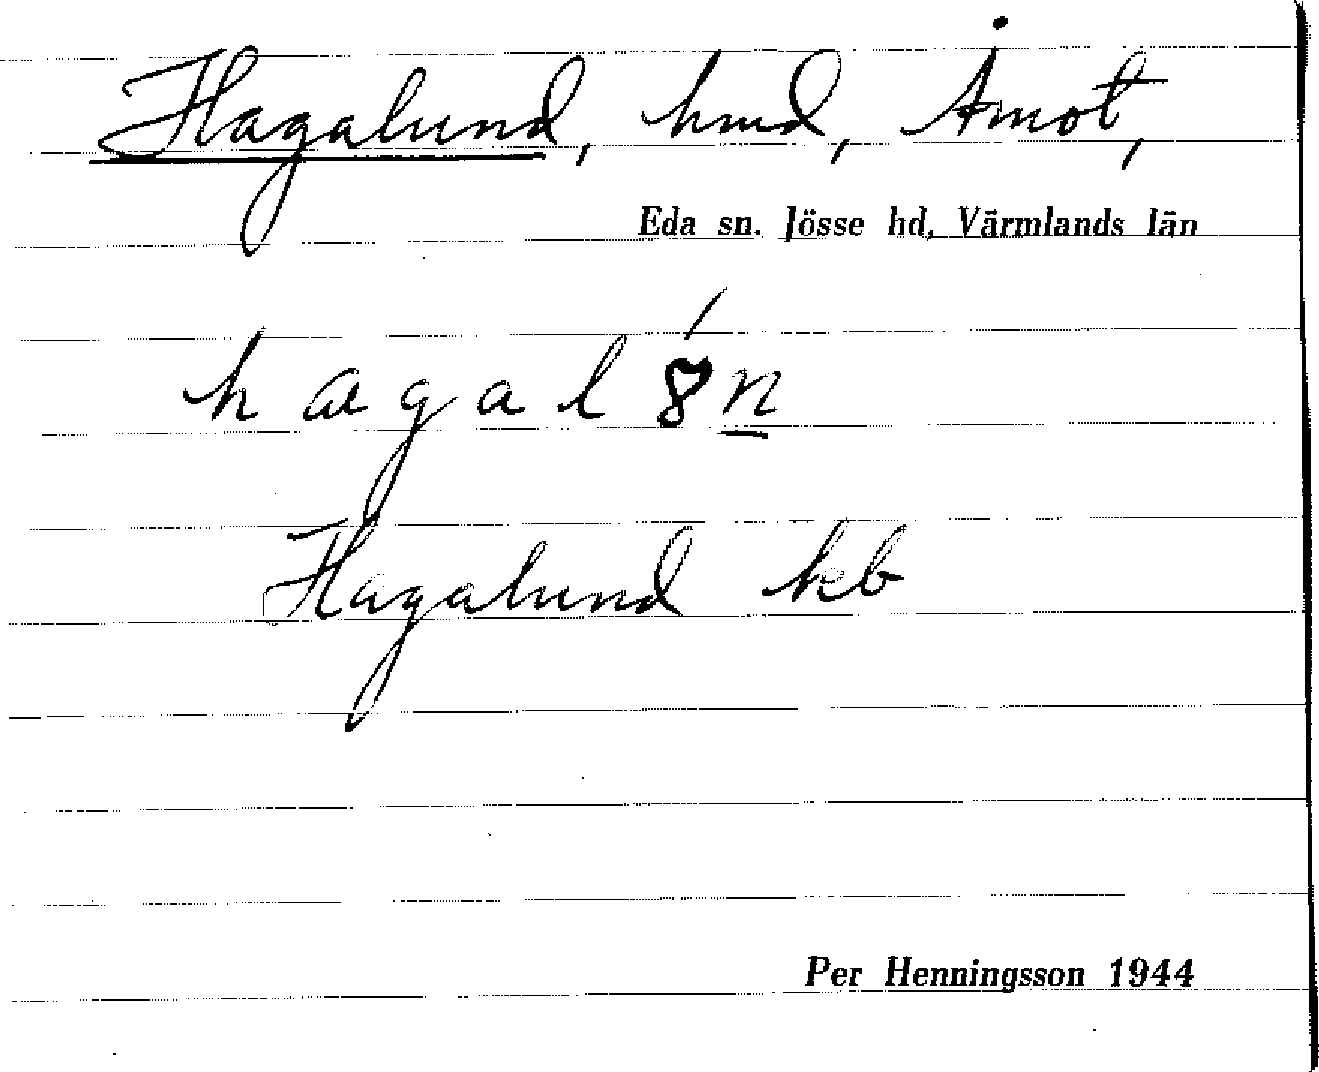 Hagalund, hmd, Åmot,
Eda sn. Jösse hd, Värmlands län
hagal8́n
Hagalund kb
Per Henningsson 1944